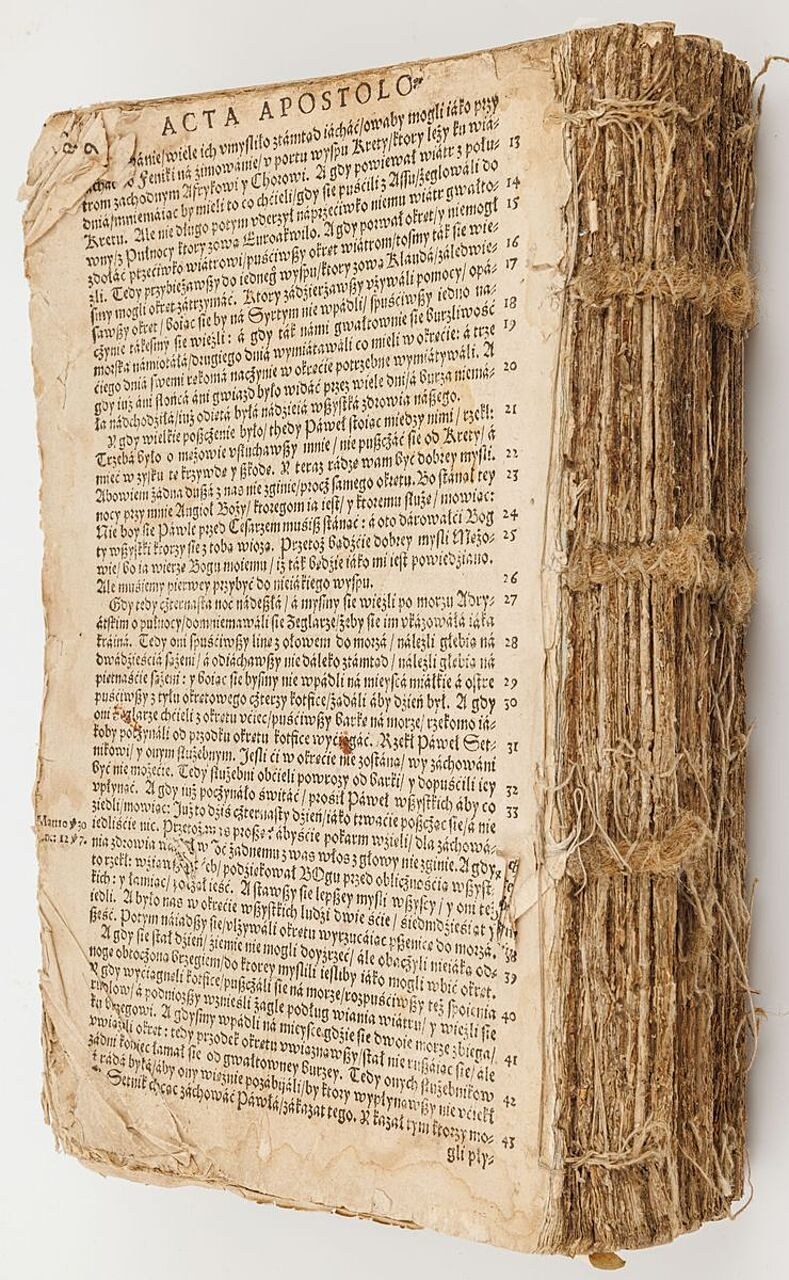 ACTA APOSTOLO
wánie/wiele ich vmysliło ztámtąd iácháć/owaby mogli iáko przy
iácháć do Feniki ná źimowánie/v portu wyspu Krety/ktory leży ku wia- 13
trom zachodnym Afrykowi y Chorowi. A gdy powiewał wiátr z połu-
dniá/mniemáiąc by mieli to co chćieli/gdy sie puśćili z Assu/żeglowáli do 14
Kretu. Ale nie długo potym vderzył náprzećiwko niemu wiátr gwałto- 15
wny/z Pułnocy ktory zową Euroakwilo. A gdy porwał okręt/y niemogł
zdołáć przećiwko wiátrowi/puśćiwßy okręt wiátrom/tosmy ták sie wie- 16
źli. Tedy przybieżawßy do iedneg wyspu/ktory zową Klaudá/záledwie- 17
smy mogli okręt zátrzymáć. Ktory zádzierżawßy vżywáli pomocy/opá-
sawßy okręt/boiąc sie by ná Syrtym nie wpádli/spuśćiwßy iedno ná- 18
czynie tákesmy sie wieźli: á gdy ták námi gwałtownie sie burzliwość 19
morska námiotáłá/drugiego dniá wymiátawáli co mieli w okręćie: á trze
ćiego dniá swemi rękomá naczynie w okręćie potrzebne wymiátywáli. A 20
gdy iuż áni słońcá áni gwiazd było widáć przez wiele dni/á burza niemá-
ła nádchodziłá/iuż odiętá była nádzieiá wßystká zdrowia náßego.
Y gdy wielkie poßczenie było/thedy Páweł stoiąc miedzy nimi/rzekł: 21
Trzebá było o mężowie vsłuchawßy mnie/nie pußczáć sie od Krety/á
mieć w zysku tę krzywdę y ßkodę. Y teraz rádzę wam być dobrey mysli. 22
Abowiem żadna dußá z nas nie zginie/procz sámego okrętu. Bo stánął tey 23
nocy przy mnie Anyoł Boży/ktoregom ia iest/y ktoremu służę/mowiąc:
Nie boy sie Páwle przed Cesárzem musiß stánąć: á oto dárowałći Bog 24
ty wßystki ktorzy sie z tobą wiozą. Przetoż bądźćie dobrey mysli Mężo- 25
wie/bo ia wierzę Bogu moiemu/iż ták będzie iáko mi iest powiedziano.
Ale muśiemy pierwey przybyć do nieiákiego wyspu. 26
Gdy tedy czternasta noc nádeßłá/á mysmy sie wieźli po morzu Adry- 27
átskim o pułnocy/domniemawáli sie Żeglarze/żeby sie im vkázowáłá iáka
kráiná. Tedy oni spuśćiwßy linę z ołowem do morzá/náleźli głębią ná 28
dwádzieśćiá sążeni/á odiáchawßy nie dáleko ztámtąd/náleźli głębią ná
piętnaśćie sążeni: y boiąc sie bysmy nie wpádli ná mieyscá miáłkie á ostre 29
puśćiwßy z tyłu okrętowego czterzy kotfice/żądáli áby dzień był. A gdy 30
oni Żeglarze chćieli z okrętu vćiec/puśćiwßy bárkę ná morze/rzekomo iá-
koby poczynáli od przodku okrętu kotfice wyćiągáć. Rzekł Páweł Set- 31
nikowi/y onym służebnym. Jesli ći w okręćie nie zostáną/wy záchowáni
być nie możećie. Tedy służebni obćięli powrozy od bárki/y dopuśćili iey 32
vpłynąć. A gdy iuż poczynáło świtáć/prośił Páweł wßystkich áby co 33
ziedli/mowiąc: Iuż to dziś czternasty dzień/iáko trwaćie poßcząc sie/á nie
iedliśćie nic. Przetoż was proßę/ábysćie pokarm wzięli/dla záchowá-
nia zdrowia bo żadnemu z was włos z głowy nie zginie. A gdy
to rzekł: wziąwßy chleb/podziękował BOgu przed oblicznośćią wßyst
kich: y łamiąc/począł ieść. A stawßy sie lepßey mysli wßyscy/y oni też
iedli. A było nas w okręćie wßystkich ludzi dwie śćie/śiedmdzieśiąt y
ßeść. Potym náiadßy sie/vlżywáli okrętu wyrzucáiąc pßenicę do morzá. 38
A gdy sie stał dzień/ziemie nie mogli doyzrzeć/ále obaczyli nieiáką od- 39
nogę obtoczoną brzegiem/do ktorey myslili iesliby iáko mogli wbić okręt.
Y gdy wyćiągnęli kotfice/pußczáli sie ná morze/rozpuśćiwßy też spoienia 40
rudłow/á podniozßy wznieśli żagle podług wiania wiátru/y wieźli sie
ku brzegowi. A gdysmy wpádli ná mieysce gdzie sie dwoie morze zbiega/ 41
vwięźili okręt: tedy przodek okrętu vwiąznąwßy/stał nie rußáiąc sie/ále
zadni koniec łamał sie od gwałtowney burzey. Tedy onych służebnikow 42
rádá byłá/áby ony więźnie pozábijáli/by ktory wypłynąwßy nie vćiekł
Setnik chcąc záchowáć Páwłá/zákazał tego. Y kazał tym ktorzy mo- 43
gli pły-